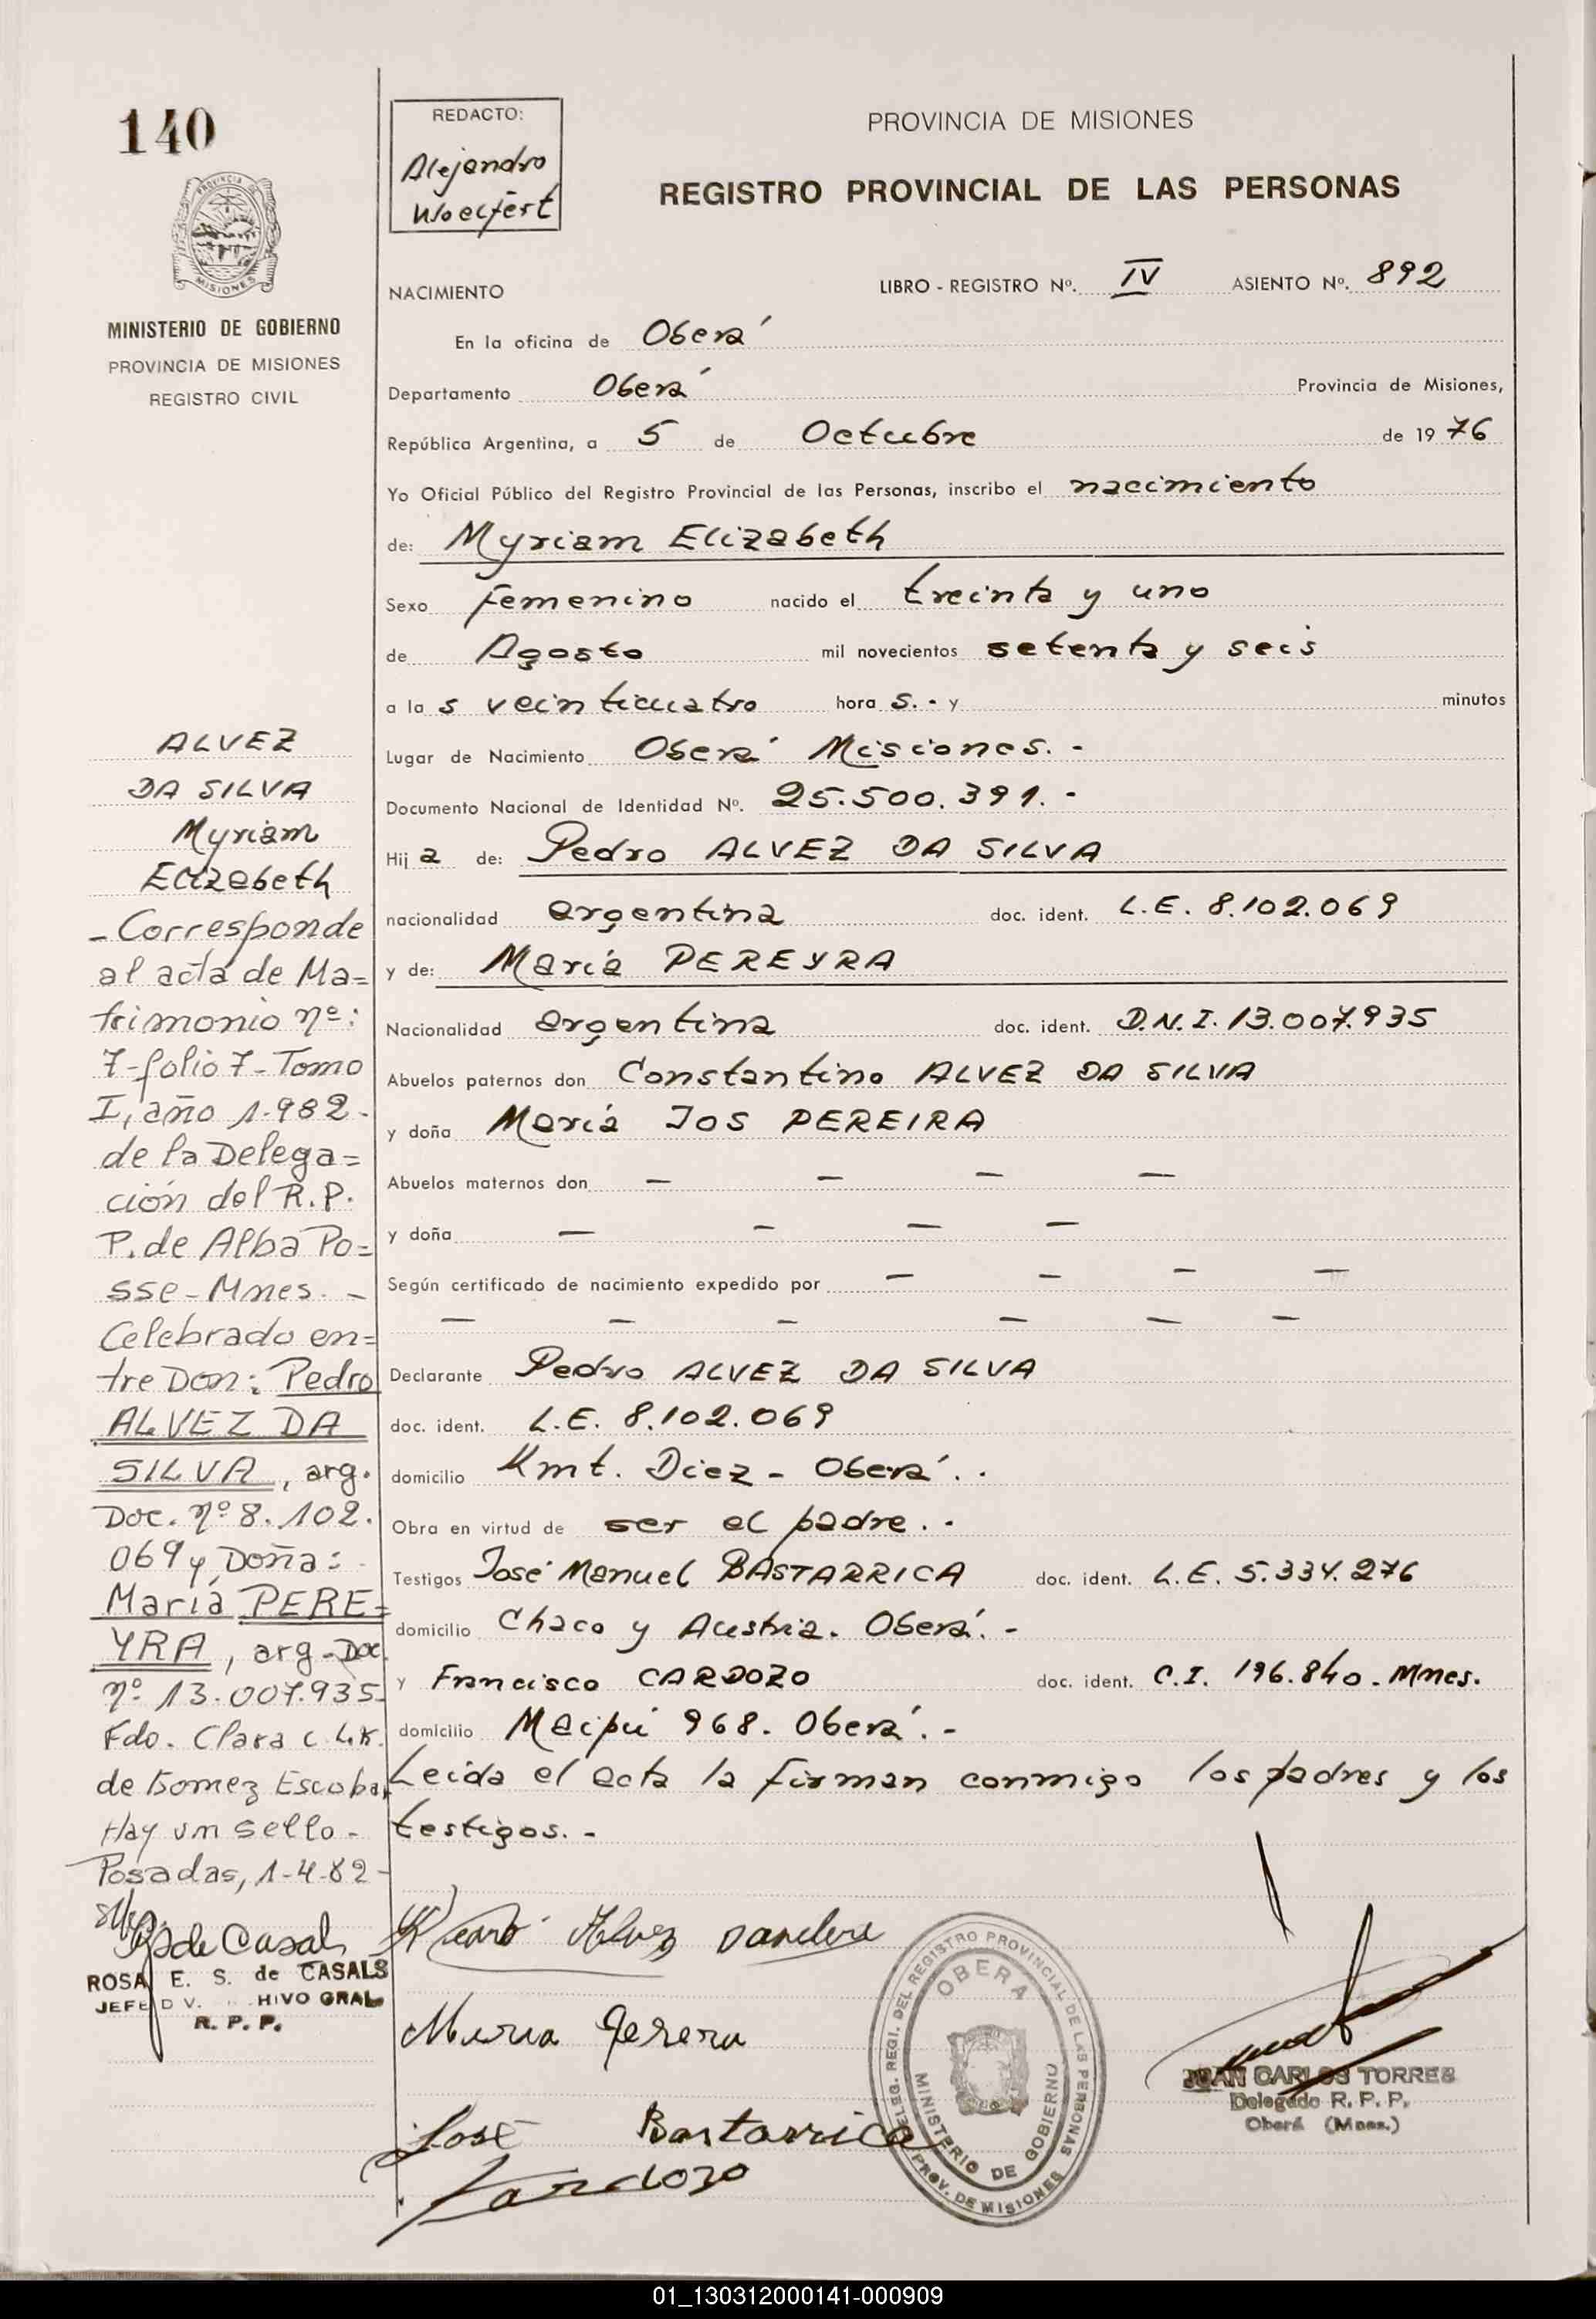 140
PROVINCIA DE
MISIONES
MINISTERIO DE GOBIERNO
PROVINCIA DE MISIONES
REGISTRO CIVIL
ALVEZ
DA SILVA
Myriam
Elizabeth
- Corresponde
al acta de Ma=
trimonio nº:
7-folio 7-Tomo
I, año 1.982-
de la Delega=
ción del R.P.
P. de Alba Po=
sse - Mnes. -
Celebrado en=
tre Don: Pedro
ALVEZ DA
SILVA, arg.
Doc. nº 8.102.
069 y Doña:
María PERE=
YRA, arg-Doc.
nº 13.007.935-
Fdo. Clara C. L.K.
de Gomez Escobar
Hay un sello -
Posadas, 1-4-82-
R S de Casals
ROSA E. S. de CASALS
JEFE D V. HIVO GRAL
R. P. P.
REDACTO:
Alejandro
Woelfert
PROVINCIA DE MISIONES
REGISTRO PROVINCIAL DE LAS PERSONAS
NACIMIENTO LIBRO - REGISTRO Nº. IV ASIENTO Nº. 892
En la oficina de Oberá
Departamento Oberá Provincia de Misiones,
República Argentina, a 5 de Octubre de 1976
Yo Oficial Público del Registro Provincial de las Personas, inscribo el nacimiento
de: Myriam Elizabeth
Sexo femenino nacido el treinta y uno
de Agosto mil novecientos setenta y seis
a la s veinticuatro hora s. - y minutos
Lugar de Nacimiento Oberá Misiones. -
Documento Nacional de Identidad Nº. 25.500.391. -
Hij a de: Pedro ALVEZ DA SILVA
nacionalidad argentina doc. ident. L.E. 8.102.069
y de: María PEREYRA
Nacionalidad argentina doc. ident. D.N.I. 13.007.935
Abuelos paternos don Constantino ALVEZ DA SILVA
y doña María JOS PEREIRA
Abuelos maternos don — — — —
y doña — — — —
Según certificado de nacimiento expedido por — — — —
— — — — — —
Declarante Pedro ALVEZ DA SILVA
doc. ident. L.E. 8.102.069
domicilio Kmt. Diez - Oberá. .
Obra en virtud de ser el padre. -
Testigos José Manuel BASTARRICA doc. ident. L.E. 5.334.276
domicilio Chaco y Austria. Oberá. -
y Francisco CARDOZO doc. ident. C.I. 196.840. Mnes.
domicilio Maipú 968. Oberá. -
Leida el acta la firman conmigo los padres y los
testigos. -
Alvez
Maria Perera
José Bastarrica
Cardozo
DELEG. REGI. DEL REGISTRO PROVINCIAL DE LAS PERSONAS
OBERA
MINISTERIO DE GOBIERNO
PROV. DE MISIONES
JUAN CARLOS TORRES
Delegado R. P. P.
Oberá (Mnes.)
01_130312000141-000909